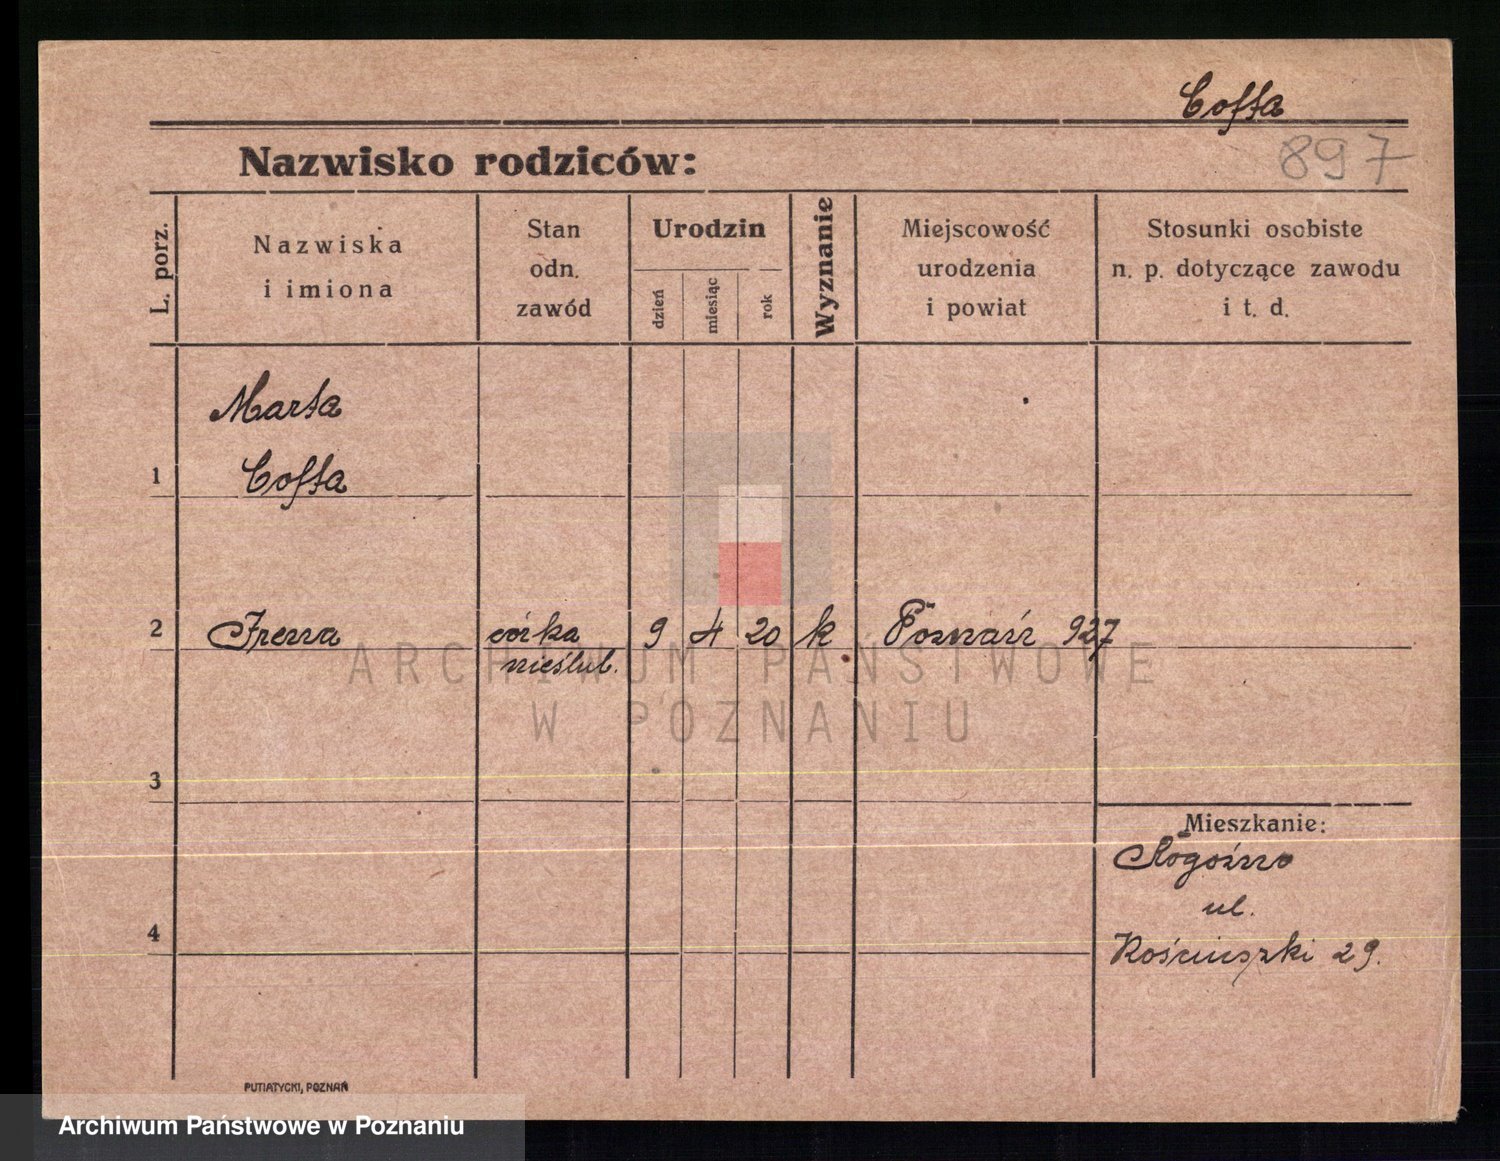 Cofta
897
Nazwisko rodziców:
L. porz.
Nazwiska
i imiona
Stan
odn.
zawód
Urodzin
dzień
miesiąc
rok
Wyznanie
Miejscowość
urodzenia
i powiat
Stosunki osobiste
n. p. dotyczące zawodu
i t. d.
Marta
1 Cofta
2 Irena córka 9 4 20 k Poznań 927
nieślub.
ARCHIWUM PAŃSTWOWE
W POZNANIU
3
Mieszkanie:
Rogoźno
ul.
4
Kościuszki 29.
PUTIATYCKI, POZNAŃ
Archiwum Państwowe w Poznaniu